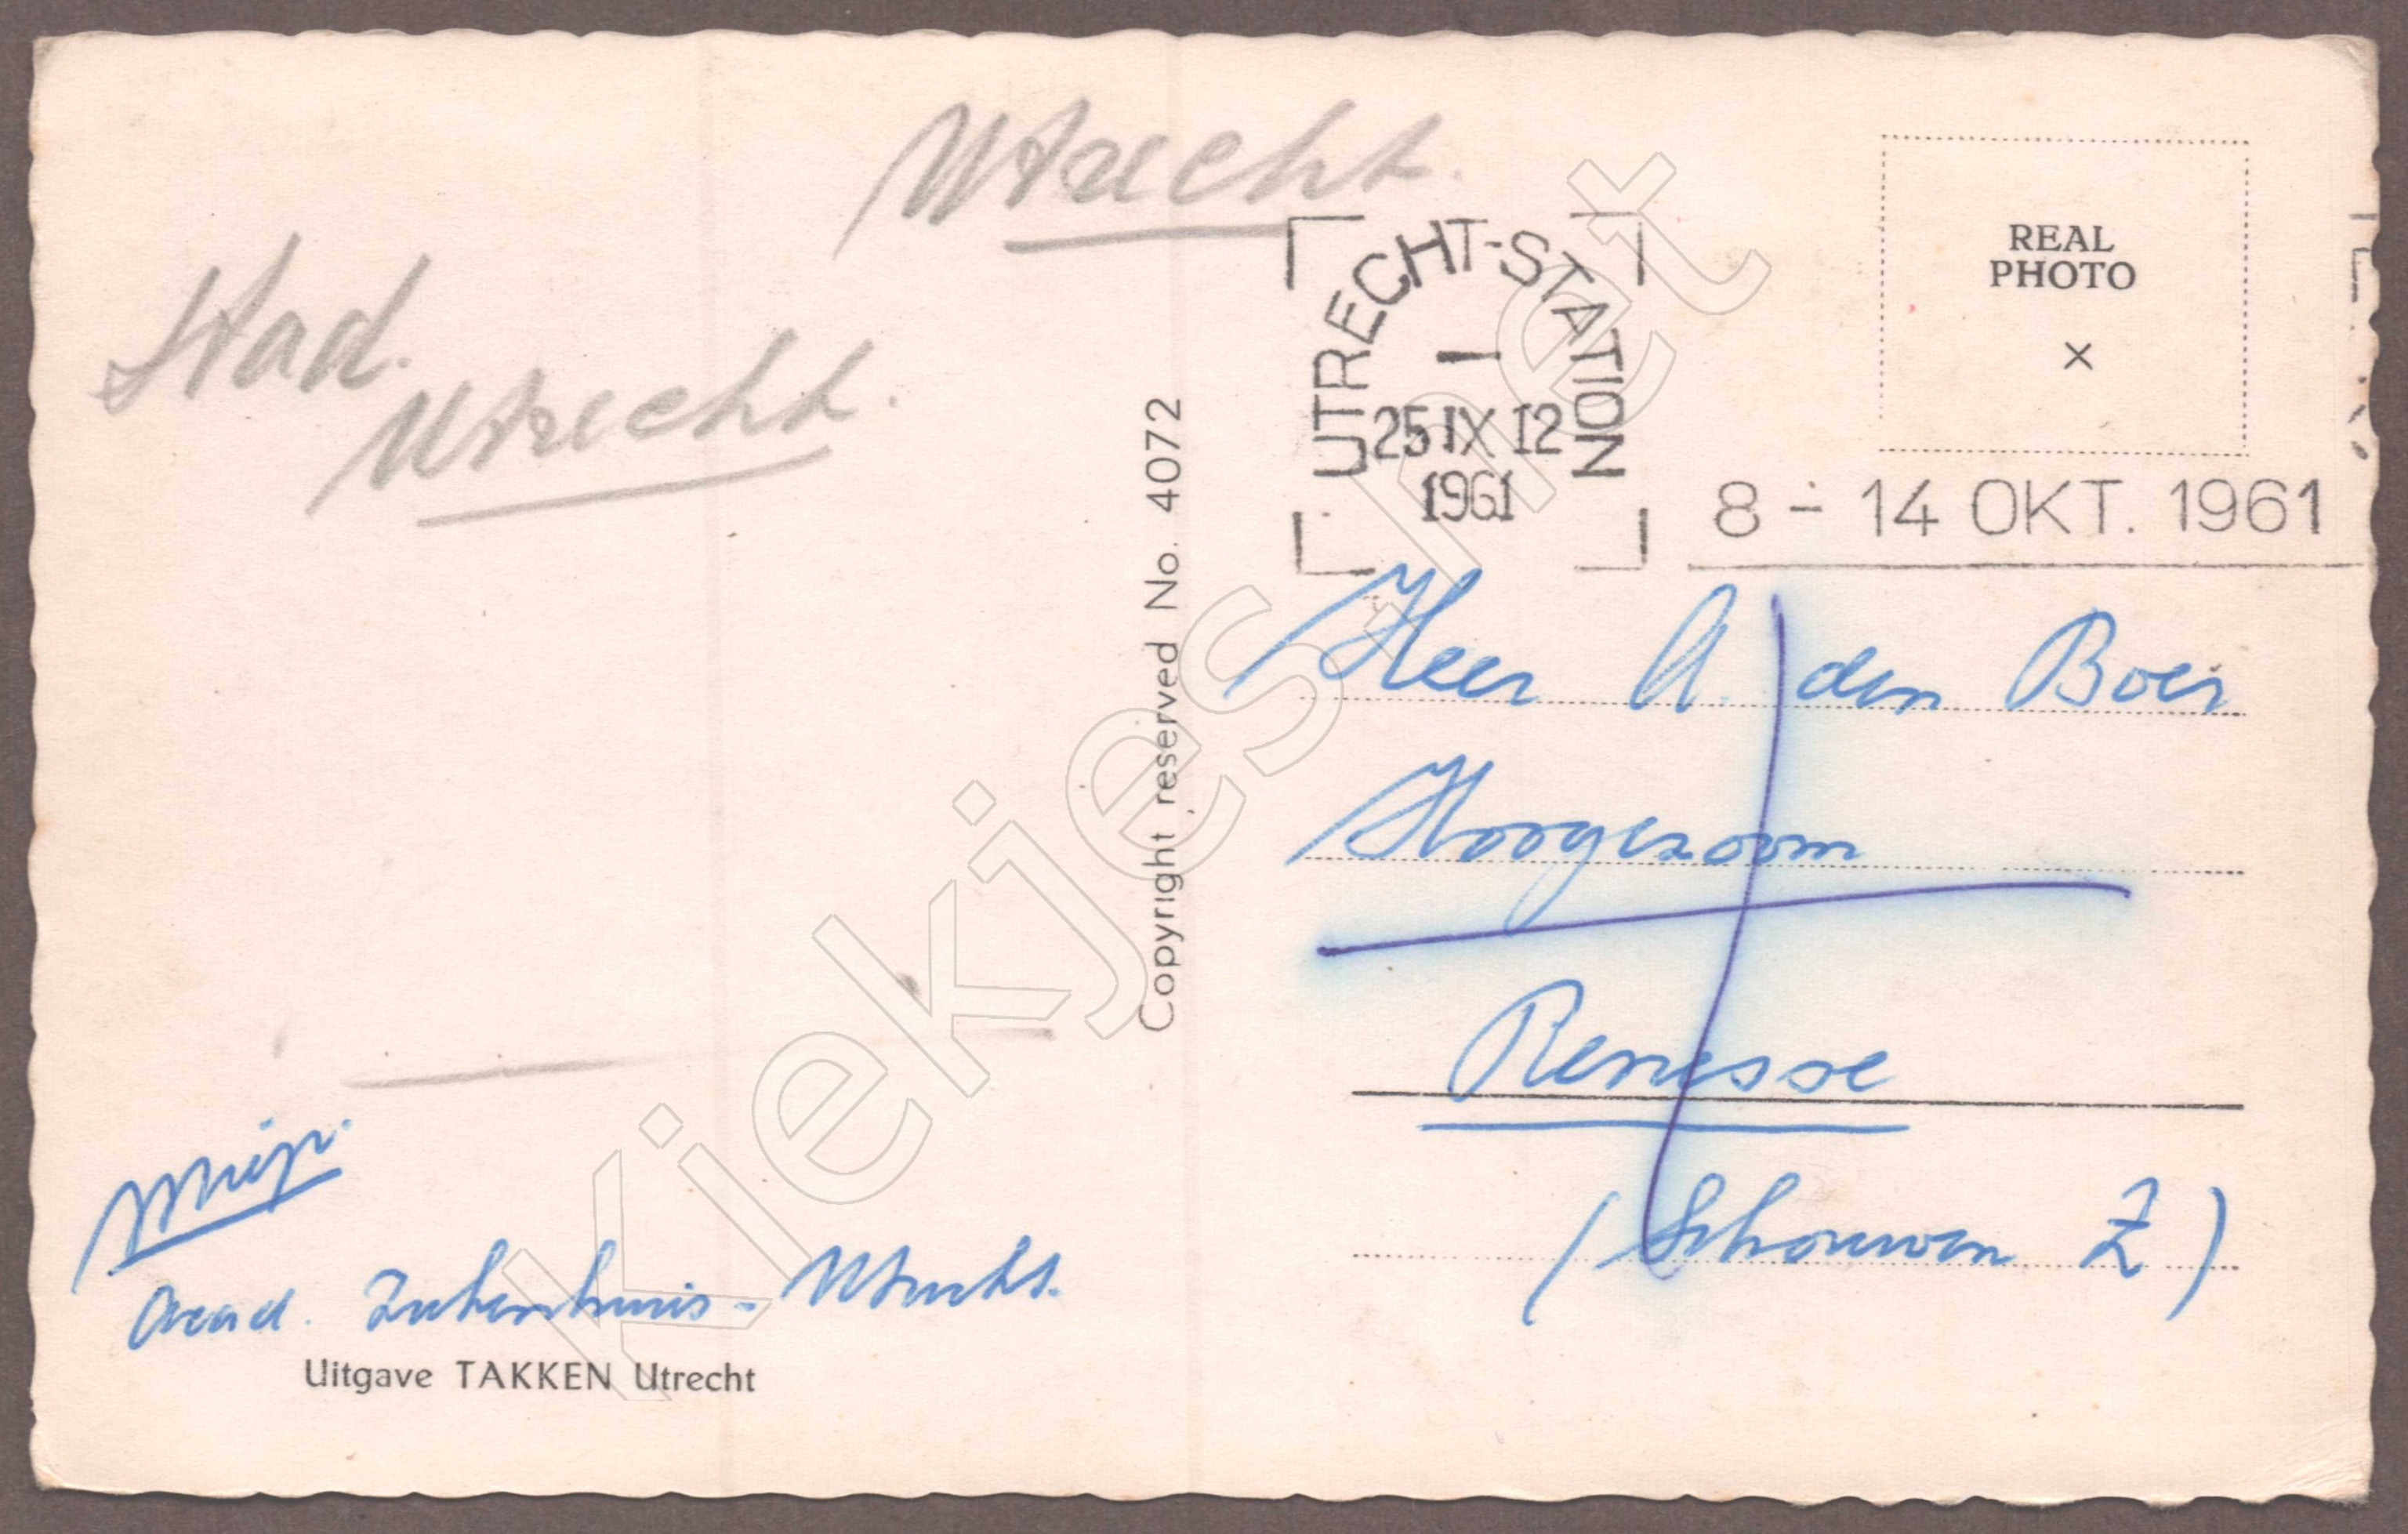 Utrecht.
Stad.
Utrecht.
UTRECHT-STATION
25 IX 12
1961
8 - 14 OKT. 1961
REAL
PHOTO
X
Copyright reserved No. 4072
Heer A. den Boer
Hoogezoom
Renesse
(Schouwen Z)
Miep.
Acad. Ziekenhuis - Utrecht.
Uitgave TAKKEN Utrecht
Kiekjes.net